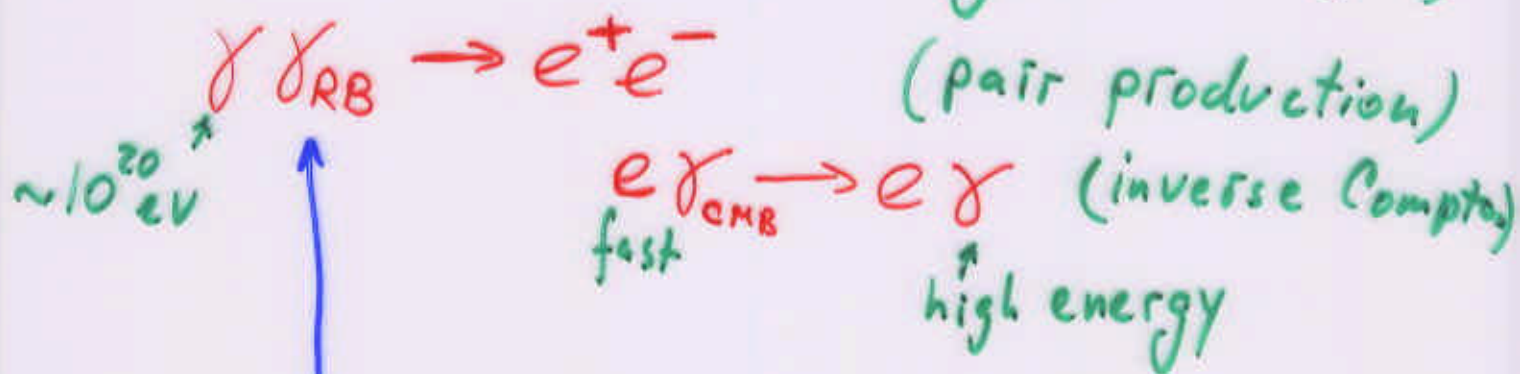 γ γ_RB → e⁺e⁻ (pair production)
~10²⁰ eV
e γ_CMB → e γ (inverse Compton)
fast
high energy